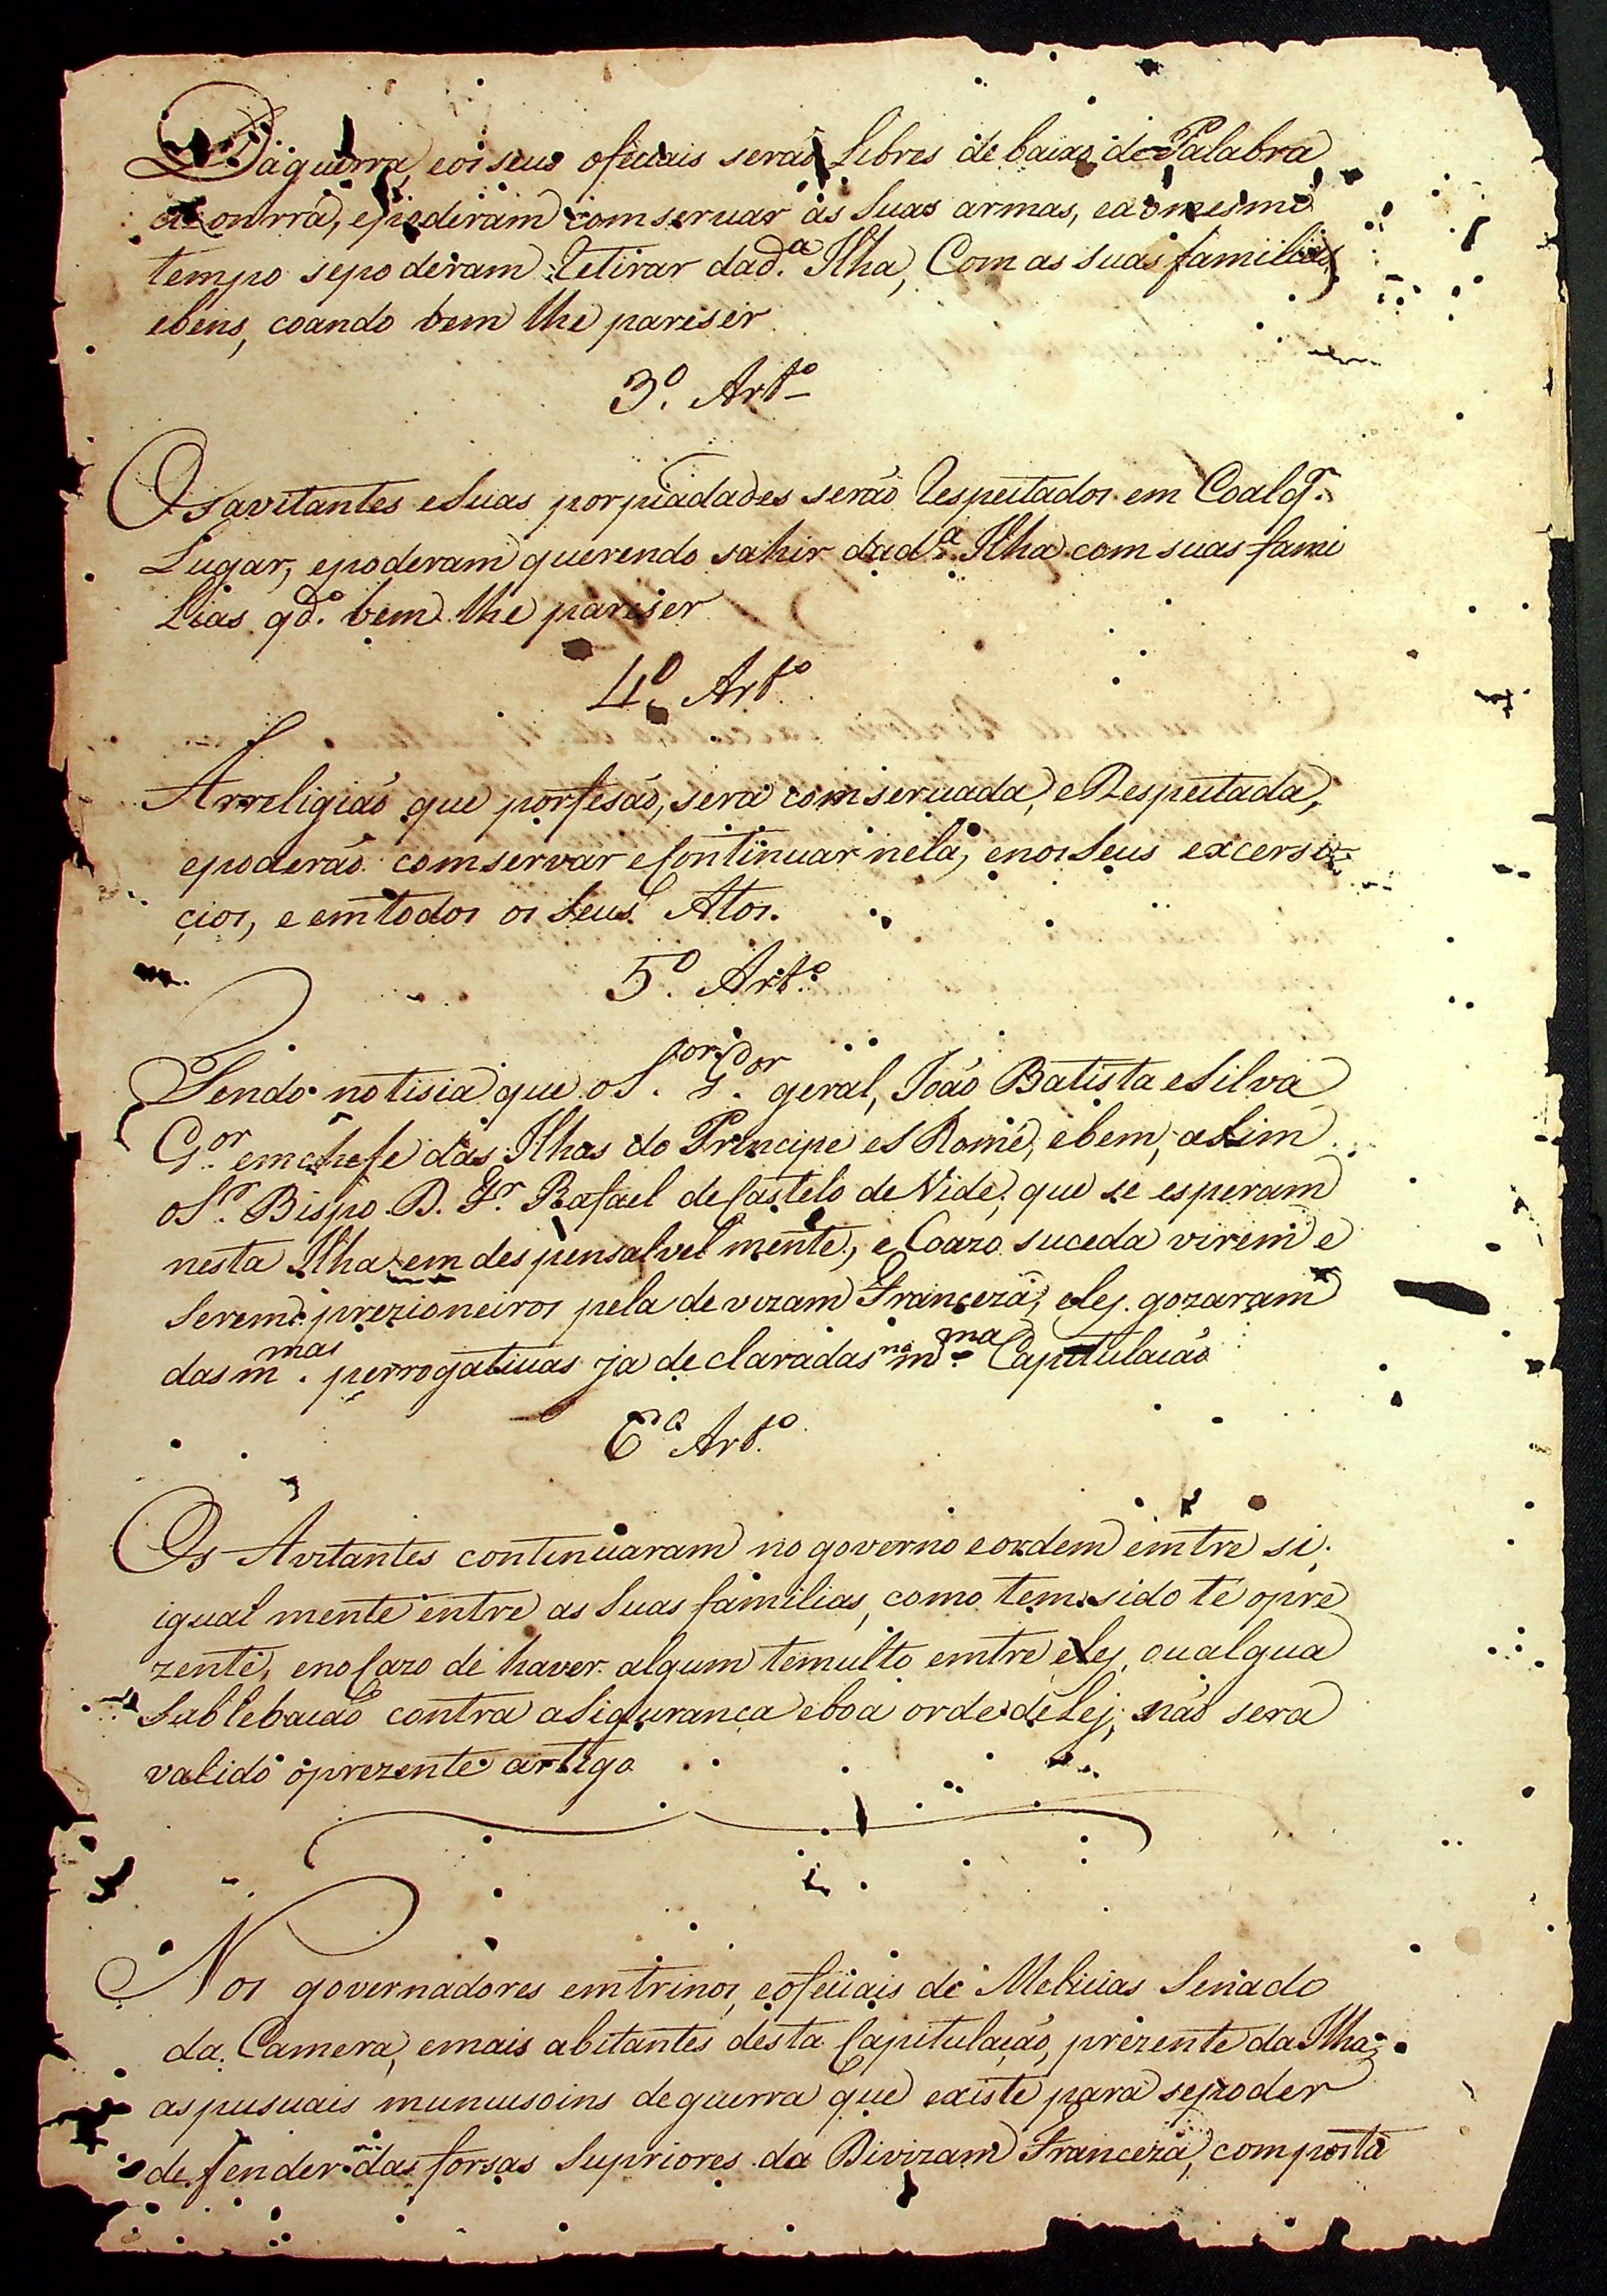 Daguerra, eos seus ofeciais serão Libres de baixo de Palabra
de onrra, epoderam comseruar as Suas armas, eaomesmo
tempo sepoderam Retirar dad.ª Ilha, Com as suas familias
ebens, coando bem lhe pareser
3º. Artº
Os avitantes eSuas porpiadades serão Respeitados em Coalqr.
Lugar, epoderam querendo sahir dadª. Ilha com suas fami
Lias qdº. bem lhe pareser
4º. Artº.
Arreligião que porfesão, sera comseruada, eRespeitada,
epoderão comservar eContinuar nela, enos Seus excersi
çios, e emtodos os Seus Atos.
5º. Artº.
Sendo notisia que oS.or G.dor geral, João Batista eSilva
G.or emchefe das Ilhas do Principe eS Romé, ebem, asim
oSr. Bispo D. Fr. Rafael deCastelo de Vide, que se esperam
nesta Ilha em despensalvel mente, eCoazo suceda virem e
Serem prezioneiros pela devizam Franceza, elej. gozaram
dasmmas. perrogativas ja declaradas na mma. Capitulacão
6º Artº.
Os Avitantes continuaram no governo eordem emtre si,
igual mente entre as Suas familias, como tem sido té opre
zente, enoCazo de haver algum temulto emtre elej, oualgua
Sublebacão contra aSigurança eboa orde delej, não sera
valido oprezente artigo
Nos governadores emtrinos, eofeciais de Melicias Senado
da Camera, emais abitantes desta Capitulação, prezente da Ilha
aspusuais munuusoins deguerra que existe para sepoder
defender das forsas Supriores da Divizam Franceza, composta